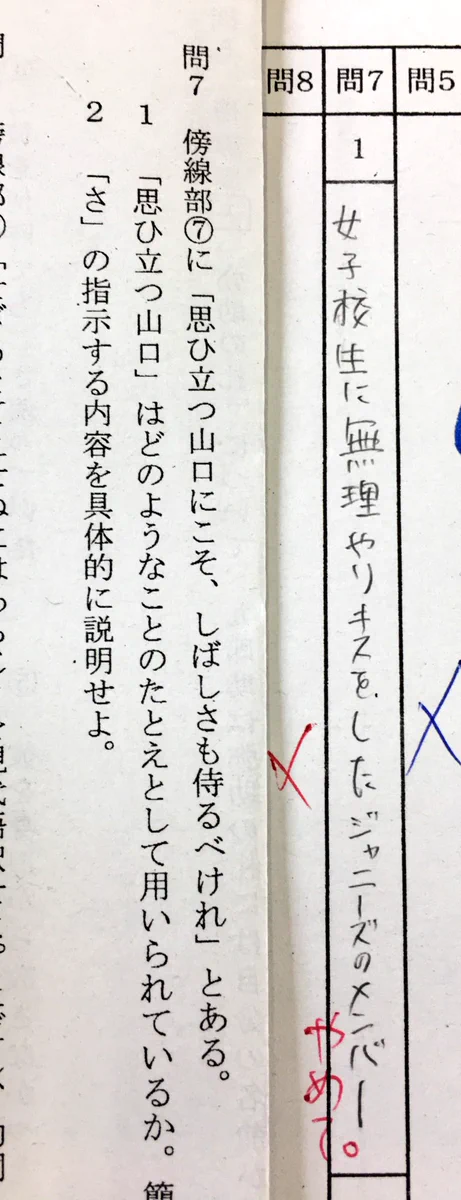 問5
問7
問8
1
女子校生に無理やりキスをしたジャニーズのメンバー
やめて。
問7 傍線部⑦に「思ひ立つ山口にこそ、しばしさも侍るべけれ」とある。
1 「思ひ立つ山口」はどのようなことのたとえとして用いられているか。簡
2 「さ」の指示する内容を具体的に説明せよ。